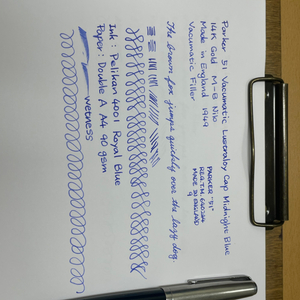 Parker 51 Vacumatic Lustraloy Cap Midnight Blue
14K Gold M-B Nib
Made in England 1949
Vacumatic Filler
PARKER "51"
MADE IN ENGLAND
9
The brown fox jumps quickly over the lazy dog.
Ink: Pelikan 4001 Royal Blue
Paper: Double A A4 90 gsm
wetness